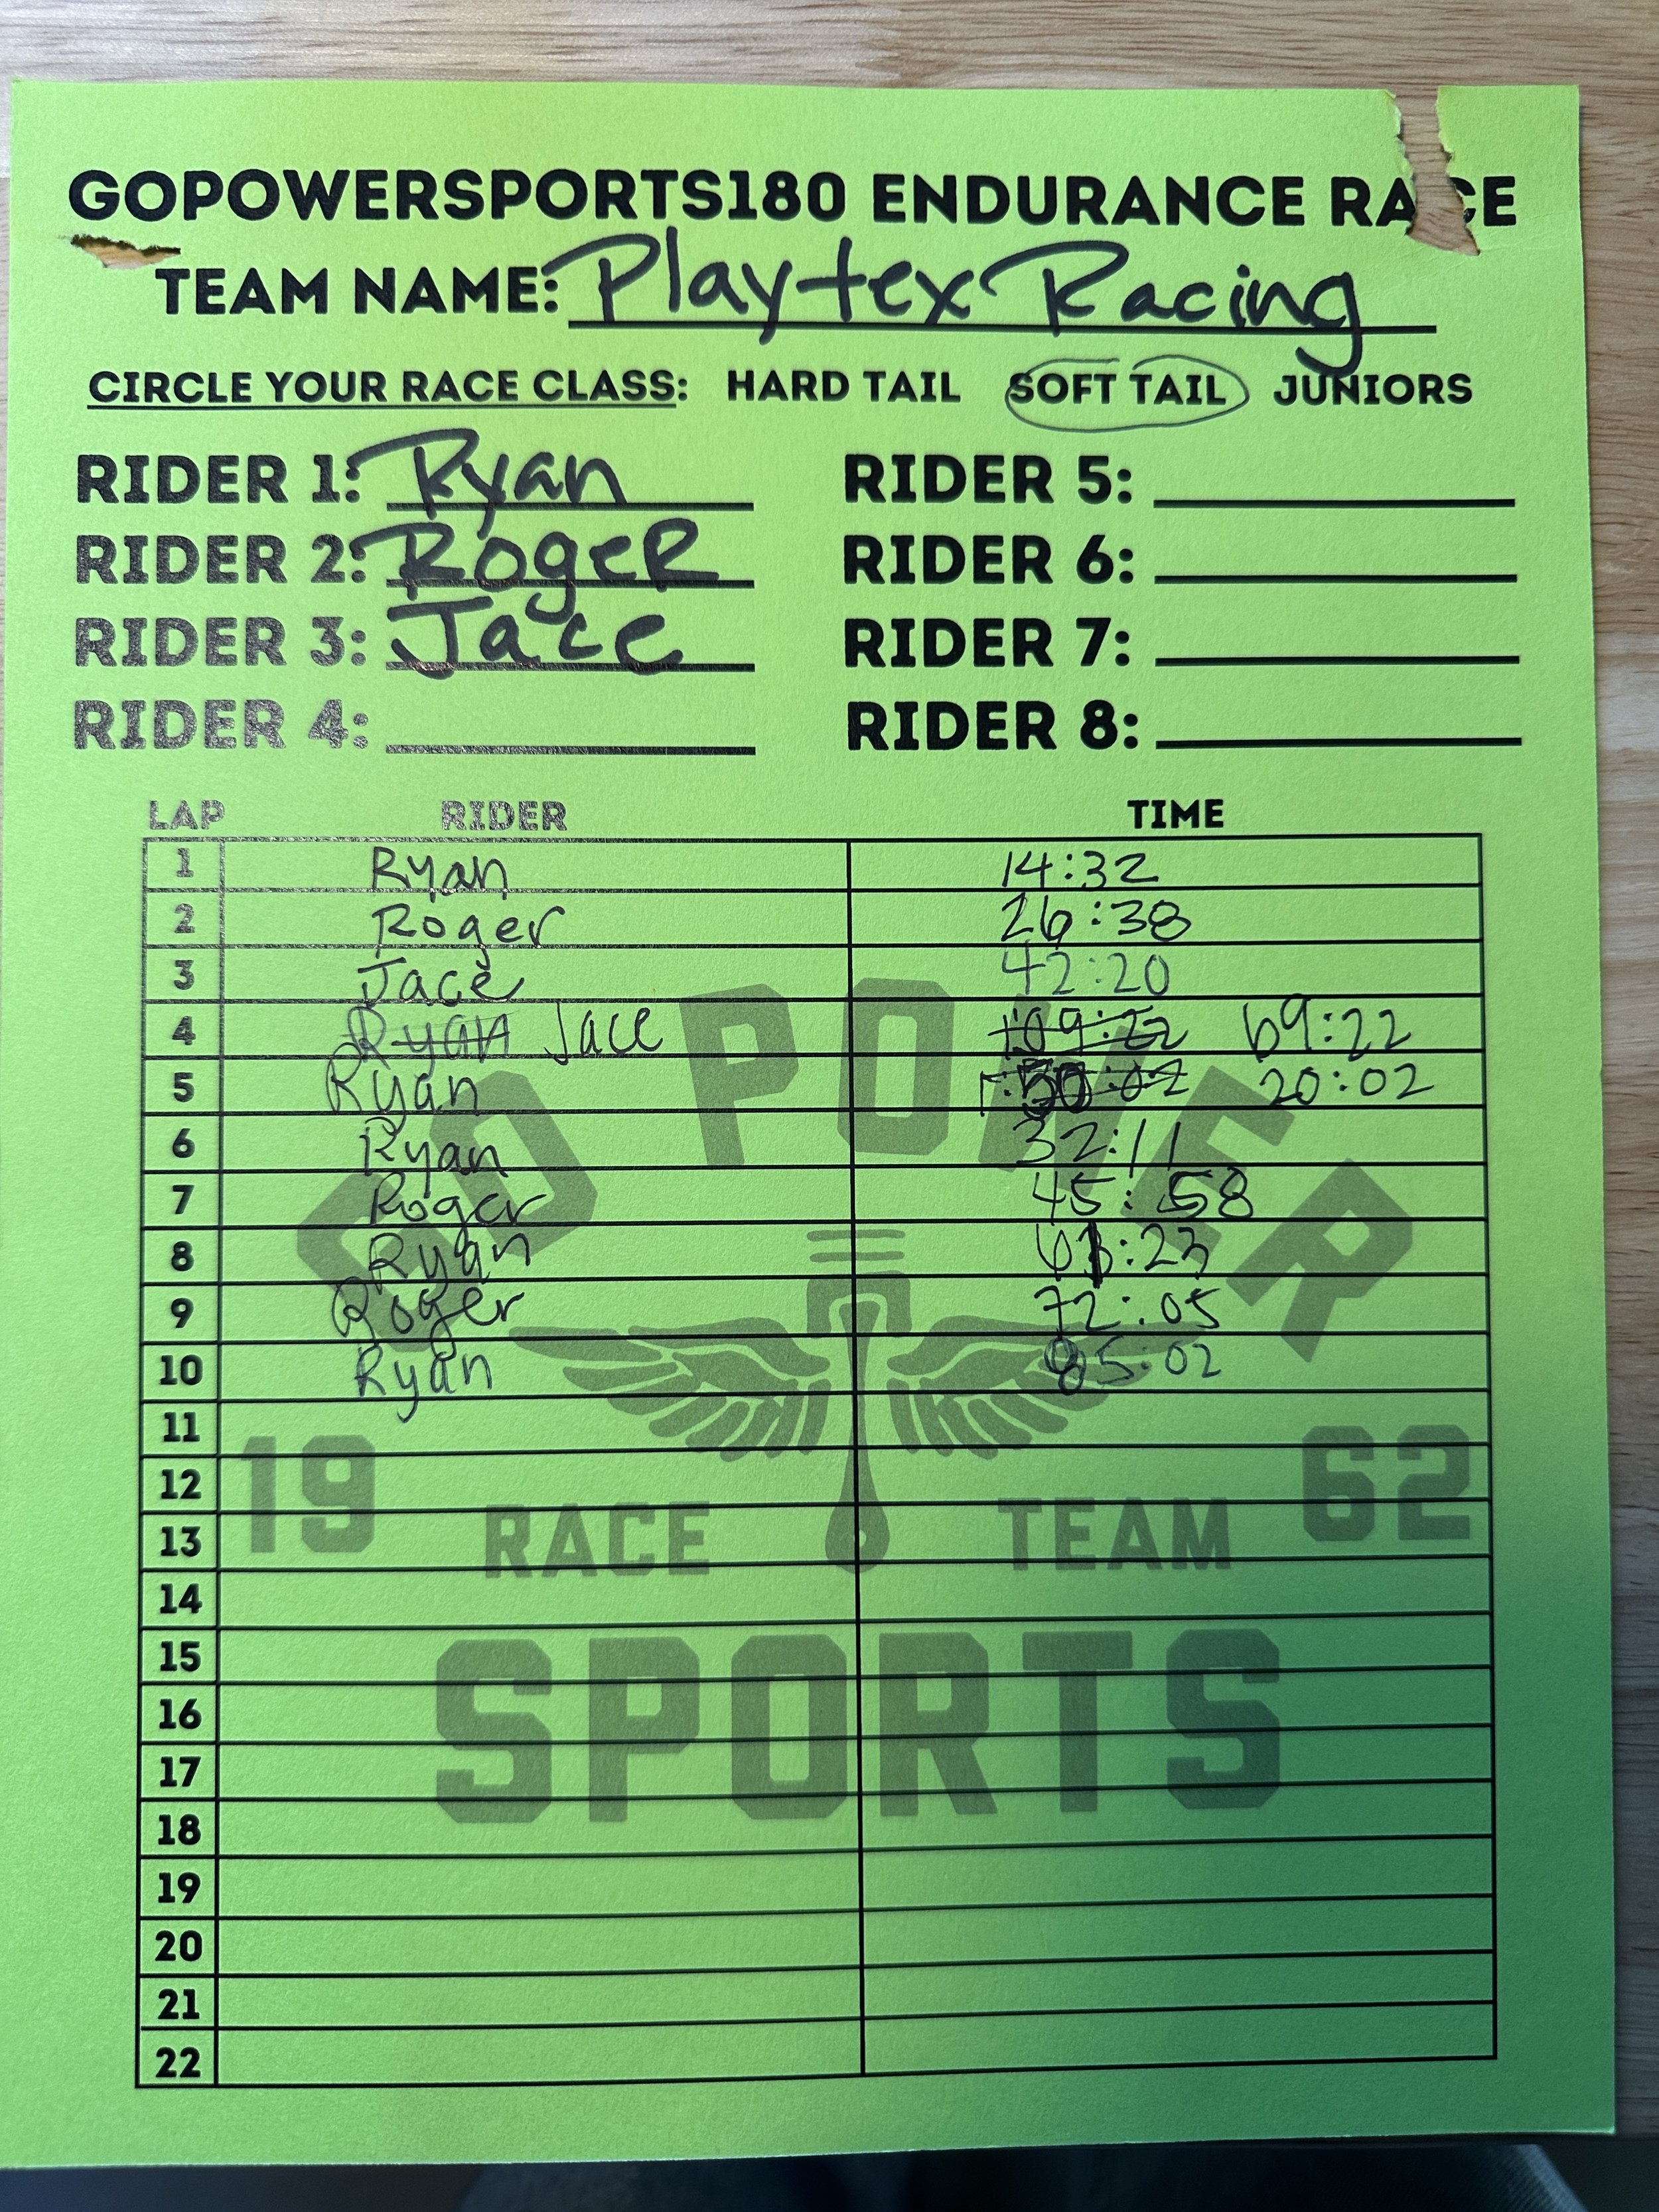 GOPOWERSPORTS180 ENDURANCE RACE
TEAM NAME: Playtex Racing
CIRCLE YOUR RACE CLASS: HARD TAIL SOFT TAIL JUNIORS
RIDER 1: Ryan RIDER 5:
RIDER 2: Roger RIDER 6:
RIDER 3: Jace RIDER 7:
RIDER 4: RIDER 8:
LAP RIDER TIME
1 Ryan 14:32
2 Roger 26:38
3 Jace 42:20
4 Ryan Jace 1:09:22 69:22
5 Ryan 20:02
6 Ryan 32:11
7 Roger 45:58
8 Ryan
9 Roger 72:05
10 Ryan 85:02
11
12
13
14
15
16
17
18
19
20
21
22
GO POWER
19 62
RACE TEAM
SPORTS